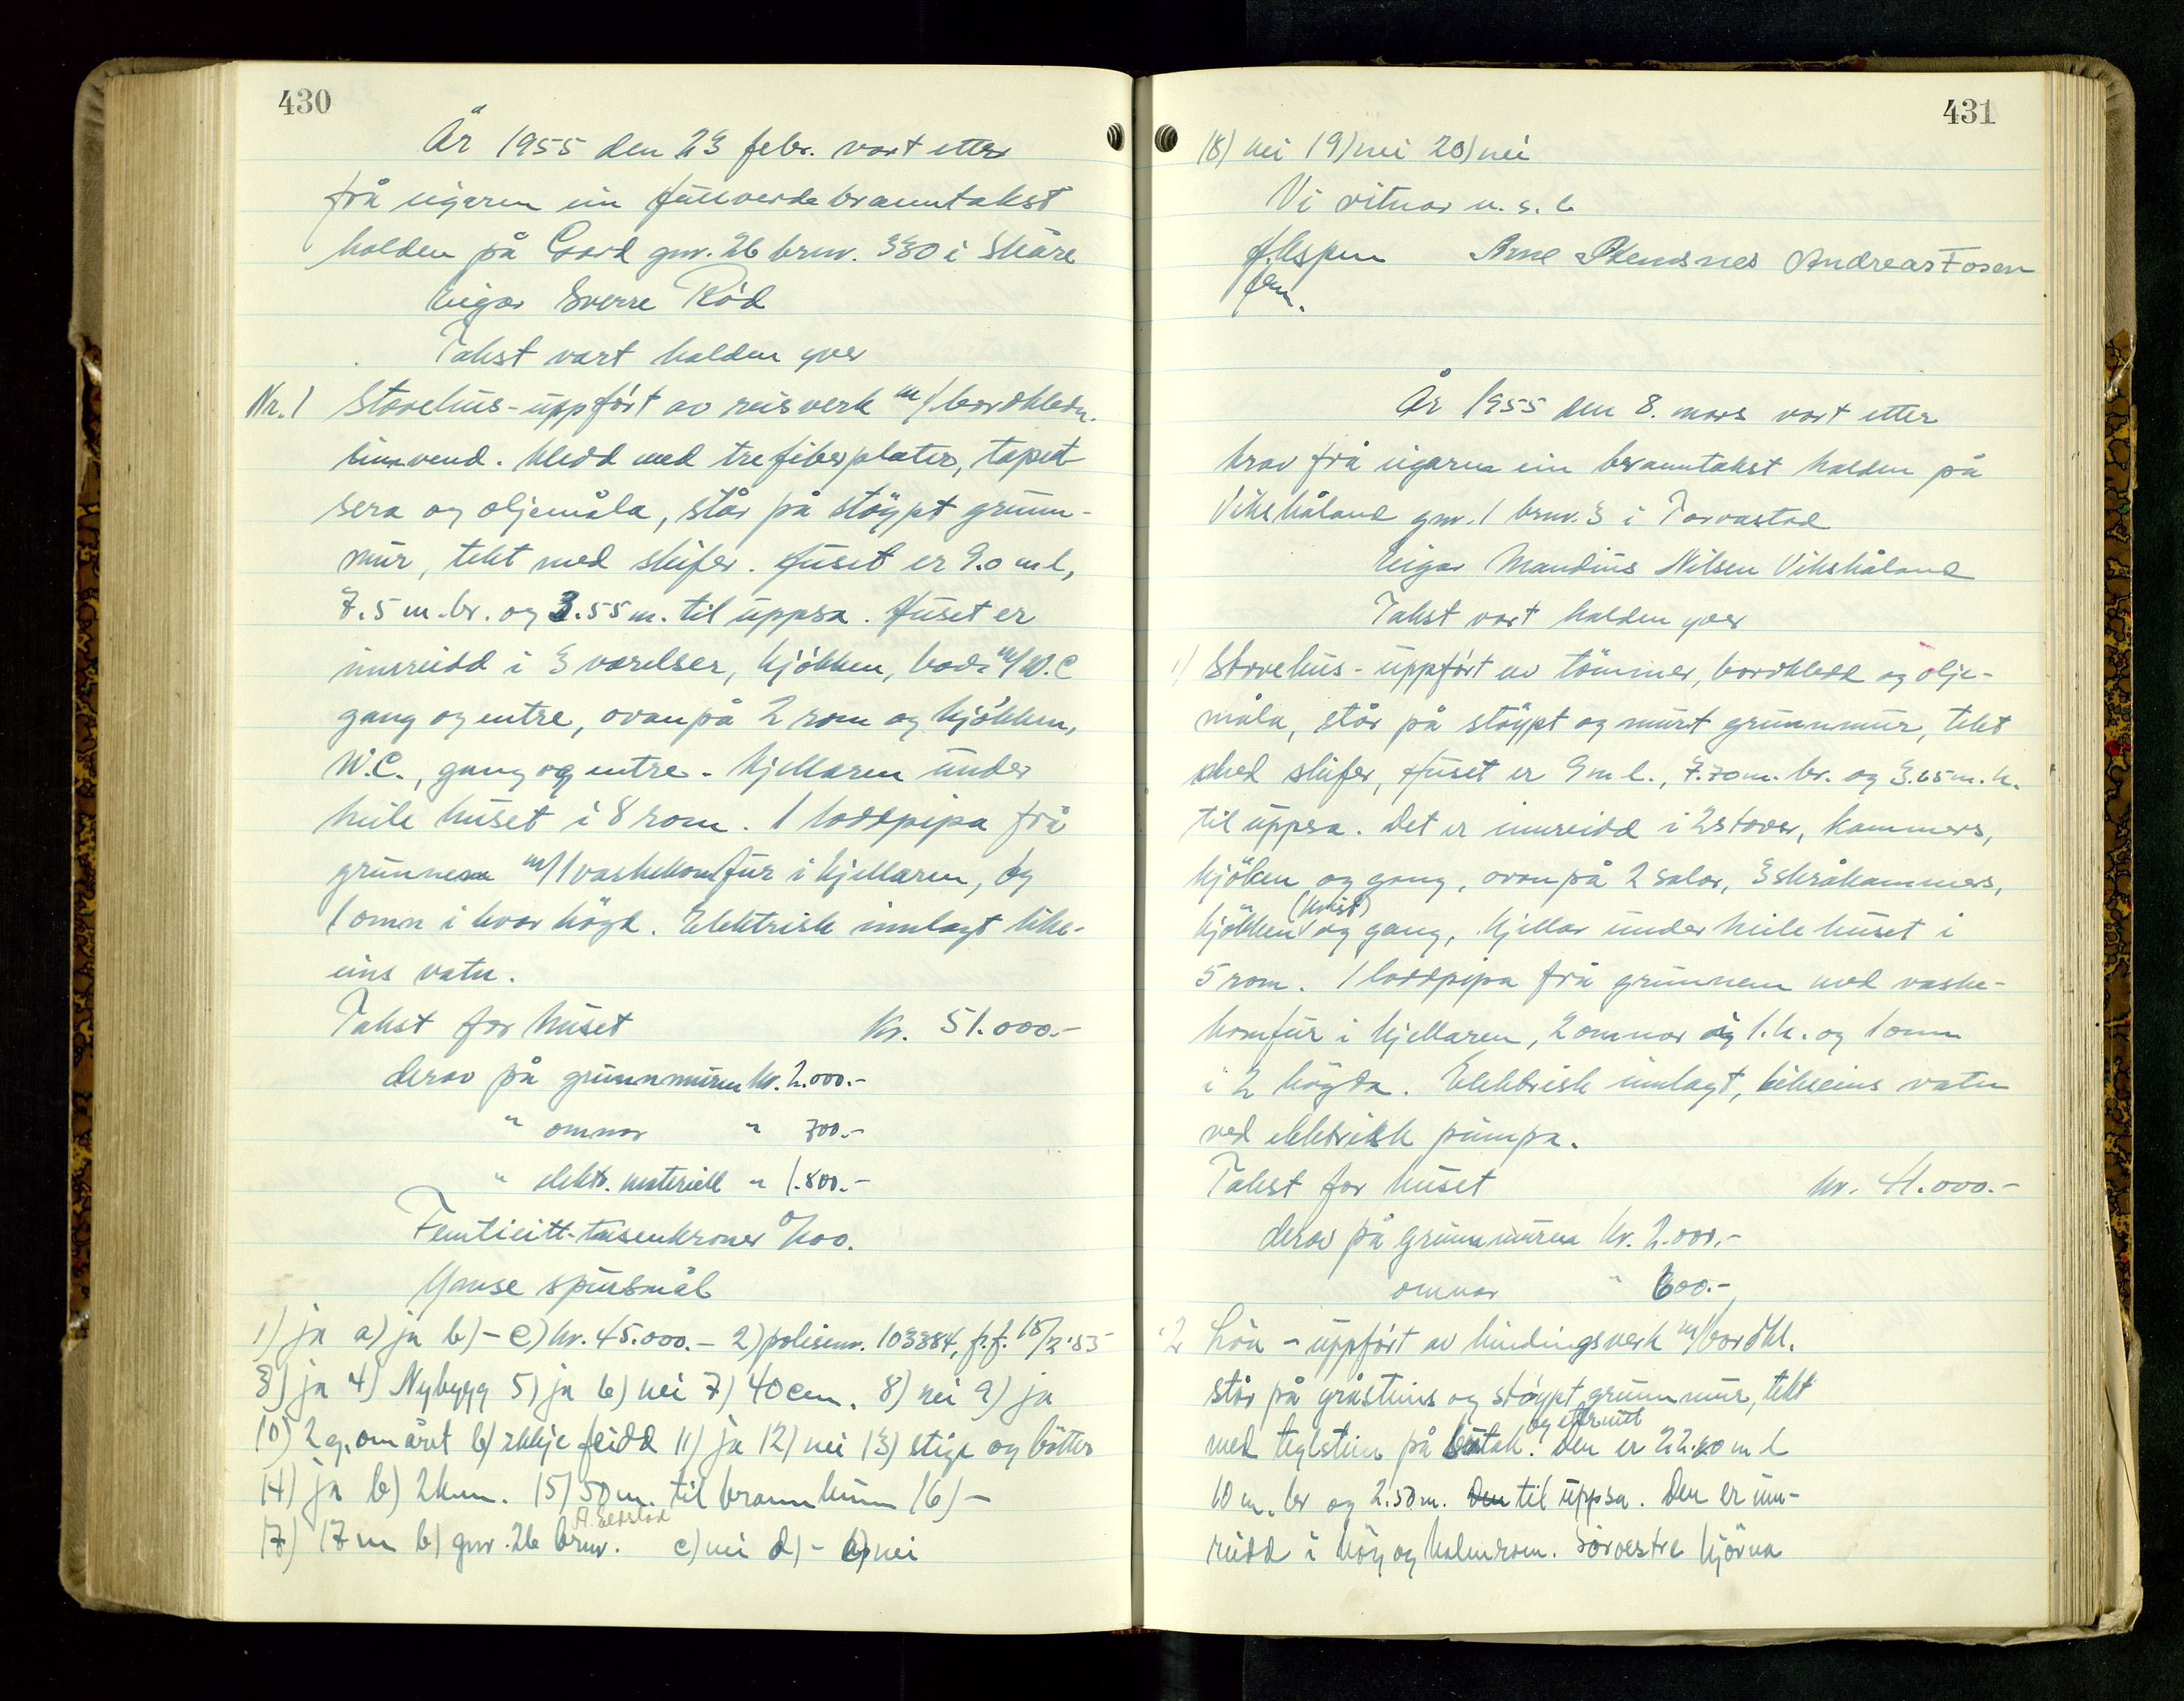 430
År 1955 den 23 febr. vart etter
frå eigaren ein fullverdabranntakst
halden på Gard gnr. 26 brnr. 330 i Skåre
Eigar Sverre Rød
Takst vart halden yver
Nr. 1 Stovehus - uppført av reisverk m/bordkledn.
innvend. kledd med trefiberplater, tapet-
sera og oljemåla, står på støypt grunn-
mur, tekt med skifer. Huset er 9.0 m l,
7.5 m. br. og 3.55 m. til uppsa. Huset er
innreidd i 3 værelser, kjökken, bad m/W.C
gang og entre, ovanpå 2 rom og kjökken,
W.C., gang og entre. Kjellaren under
heile huset i 8 rom. 1 loddpipa frå
grunnen m/1 vaskekomfur i kjellaren, og
1 omn i kvar högd. Elektrisk innlagt like-
eins vatn.
Takst for huset kr. 51.000.-
derav på grunnmuren kr. 2.000.-
" omnar " 700.-
" elektr. materiell " 1.800.-
Femtieitt-tusenkroner 0/100.
Ymse spursmål
1) ja a) ja b) - c) kr. 45.000.- 2) polisenr. 103384, f.f. 15/2'55
3) ja 4) Nybygg 5) ja 6) nei 7) 40 cm. 8) nei 9) ja
10) 2 g. om året b) ikkje feidd 11) ja 12) nei 13) stige og bötter
14) ja b) 2 km. 15) 50 m. til brannkum 16) -
A. Eldstad
17) 17 m b) gnr. 26 brnr. c) nei d) - e) nei
431
18) nei 19) nei 20) nei
Vi vitnar u. s. b
J. Aspen Arne Stemsnes Andreas Fosen
fem.
År 1955 den 8. mars vart etter
krav frå eigaren ein branntakst halden på
Vikshåland gnr. 1 brnr. 3 i Torvastad
Eigar Mandius Nilsen Vikshåland
Takst vart halden yver
1) Stovehus - uppført av tömmer, bordkledd og olje-
måla, står på støypt og murt grunnmur, tekt
med skifer, Huset er 9 m l., 7.70 m. br. og 3.65 m. h.
til uppsa. Det er innreidd i 2 stover, kammers,
kjöken og gang, ovanpå 2 salar, 3 skråkammers,
(kvist)
kjökken og gang, kjellar under heile huset i
5 rom. 1 loddpipa frå grunnen med vaske-
komfur i kjellaren, 2 omnar i 1. h. og 1 omn
i 2 högda. Elektrisk innlagt, likeeins vatn
ved elektrisk pumpa.
Takst for huset kr. 41.000.-
derav på grunnmuren kr. 2.000.-
omnar " 600.-
2 Löa - uppført av bindingsverk m/bordkl.
står på gråsteins og støypt grunnmur, tekt
og eternitt
med teglstein på sutak. Den er 22.20 m l
10 m. br og 2.50 m. den til uppsa. Den er inn-
reidd i höy og halmrom. Sörvestre hjörna